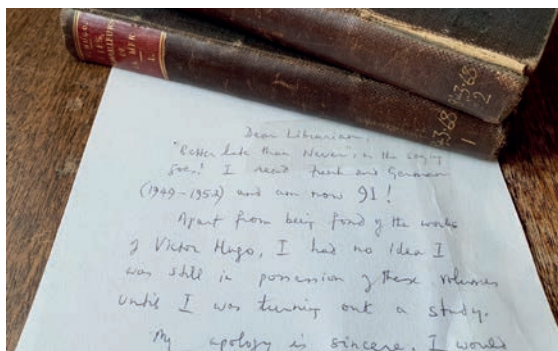 HUGO
LES
TRAVAILLEURS
DE
LA MER
1.
2
1
Dear Librarian,
"Better late than Never", as the saying
goes! I read French and German
(1949-1952) and am now 91!
Apart from being fond of the works
of Victor Hugo, I had no idea I
was still in possession of these volumes
until I was turning out a study.
My apology is sincere. I would